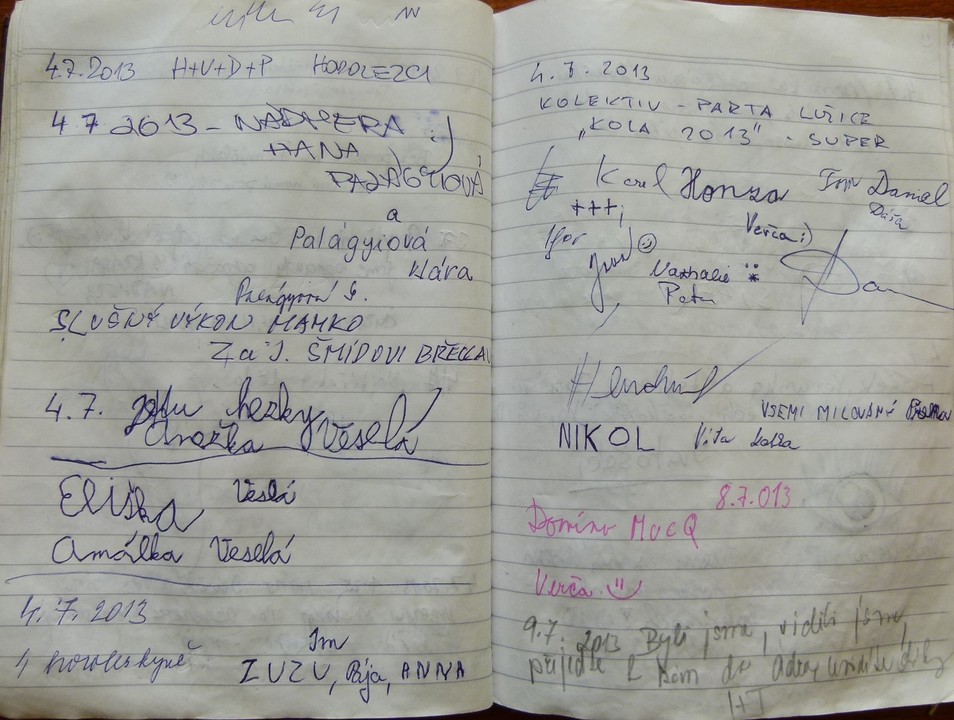 4.7.2013 H+V+D+P HOROLEZCI
4 7 2013 - NÁDHERA :)
HANA
PALÁGYIOVÁ
a
Palágyiová
Klára
SLUŠNÝ VÝKON MAMKO
Za J. ŠMÍDOVI BŘECLAV
4.7. je tu hezky
Anežka Veselá
Eliška Veselá
Amálka Veselá
4.7.2013
4 horolezkyně
ZUZU, Pája, ANNA
4.7.2013
KOLEKTIV - PARTA LUŽICE
„KOLA 2013" - SUPER
Karel Honza Daniel
Dáša
+++;
Igor Verča :)
Nathalie
Petr
Dan
VŠEMI MILOVANÝ
NIKOL Víta
8.7.013
Domino MUCQ
Verča
9.7. 2013 Byli jsme, viděli jsme,
přijeďte k nám do